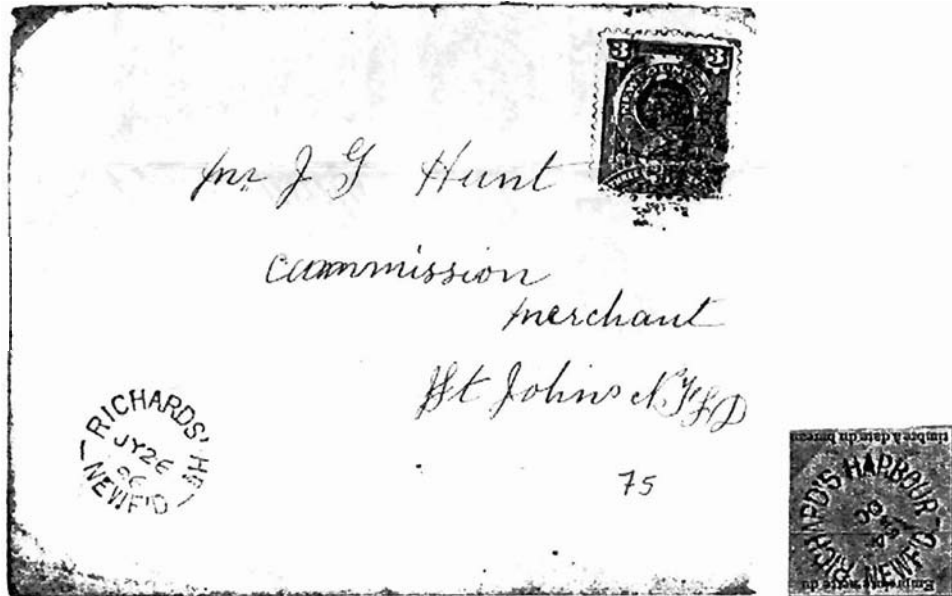 3 3
Mr J G Hunt
Commission
merchant
St Johns NFLD
RICHARDS' HR
JY 26
NEWF'D
75
timbre à date du bureau
RICHARD'S HARBOUR
NEWF'D
Empreinte nette du